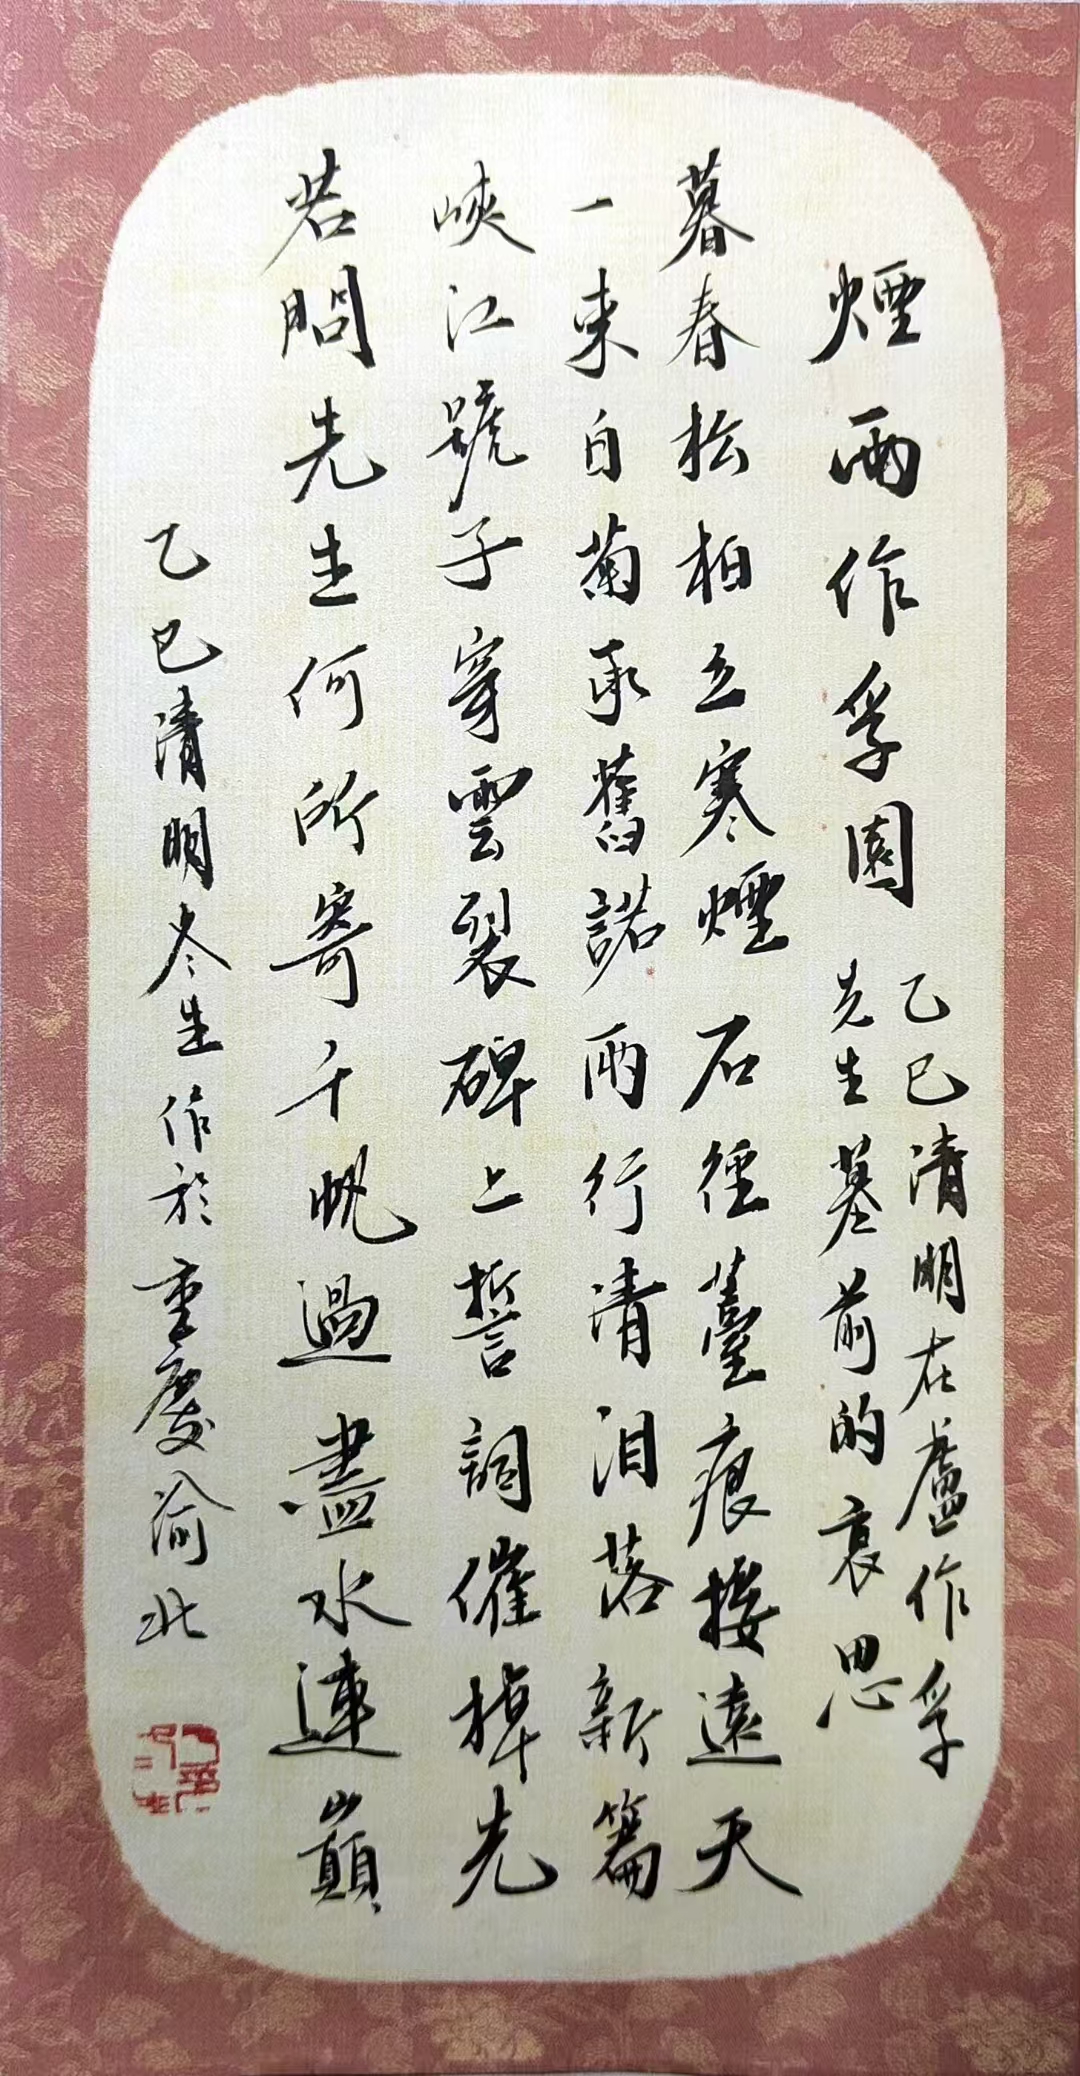 煙雨作孚園
乙巳清明在盧作孚
先生墓前的哀思
暮春松柏立寒煙 石徑薹痕接遠天
一束白菊承舊諾 兩行清泪落新篇
峽江號子穿雲裂 碑上誓詞催棹先
若問先生何所寄 千帆過盡水連巔
乙巳清明冬生作於重慶渝北